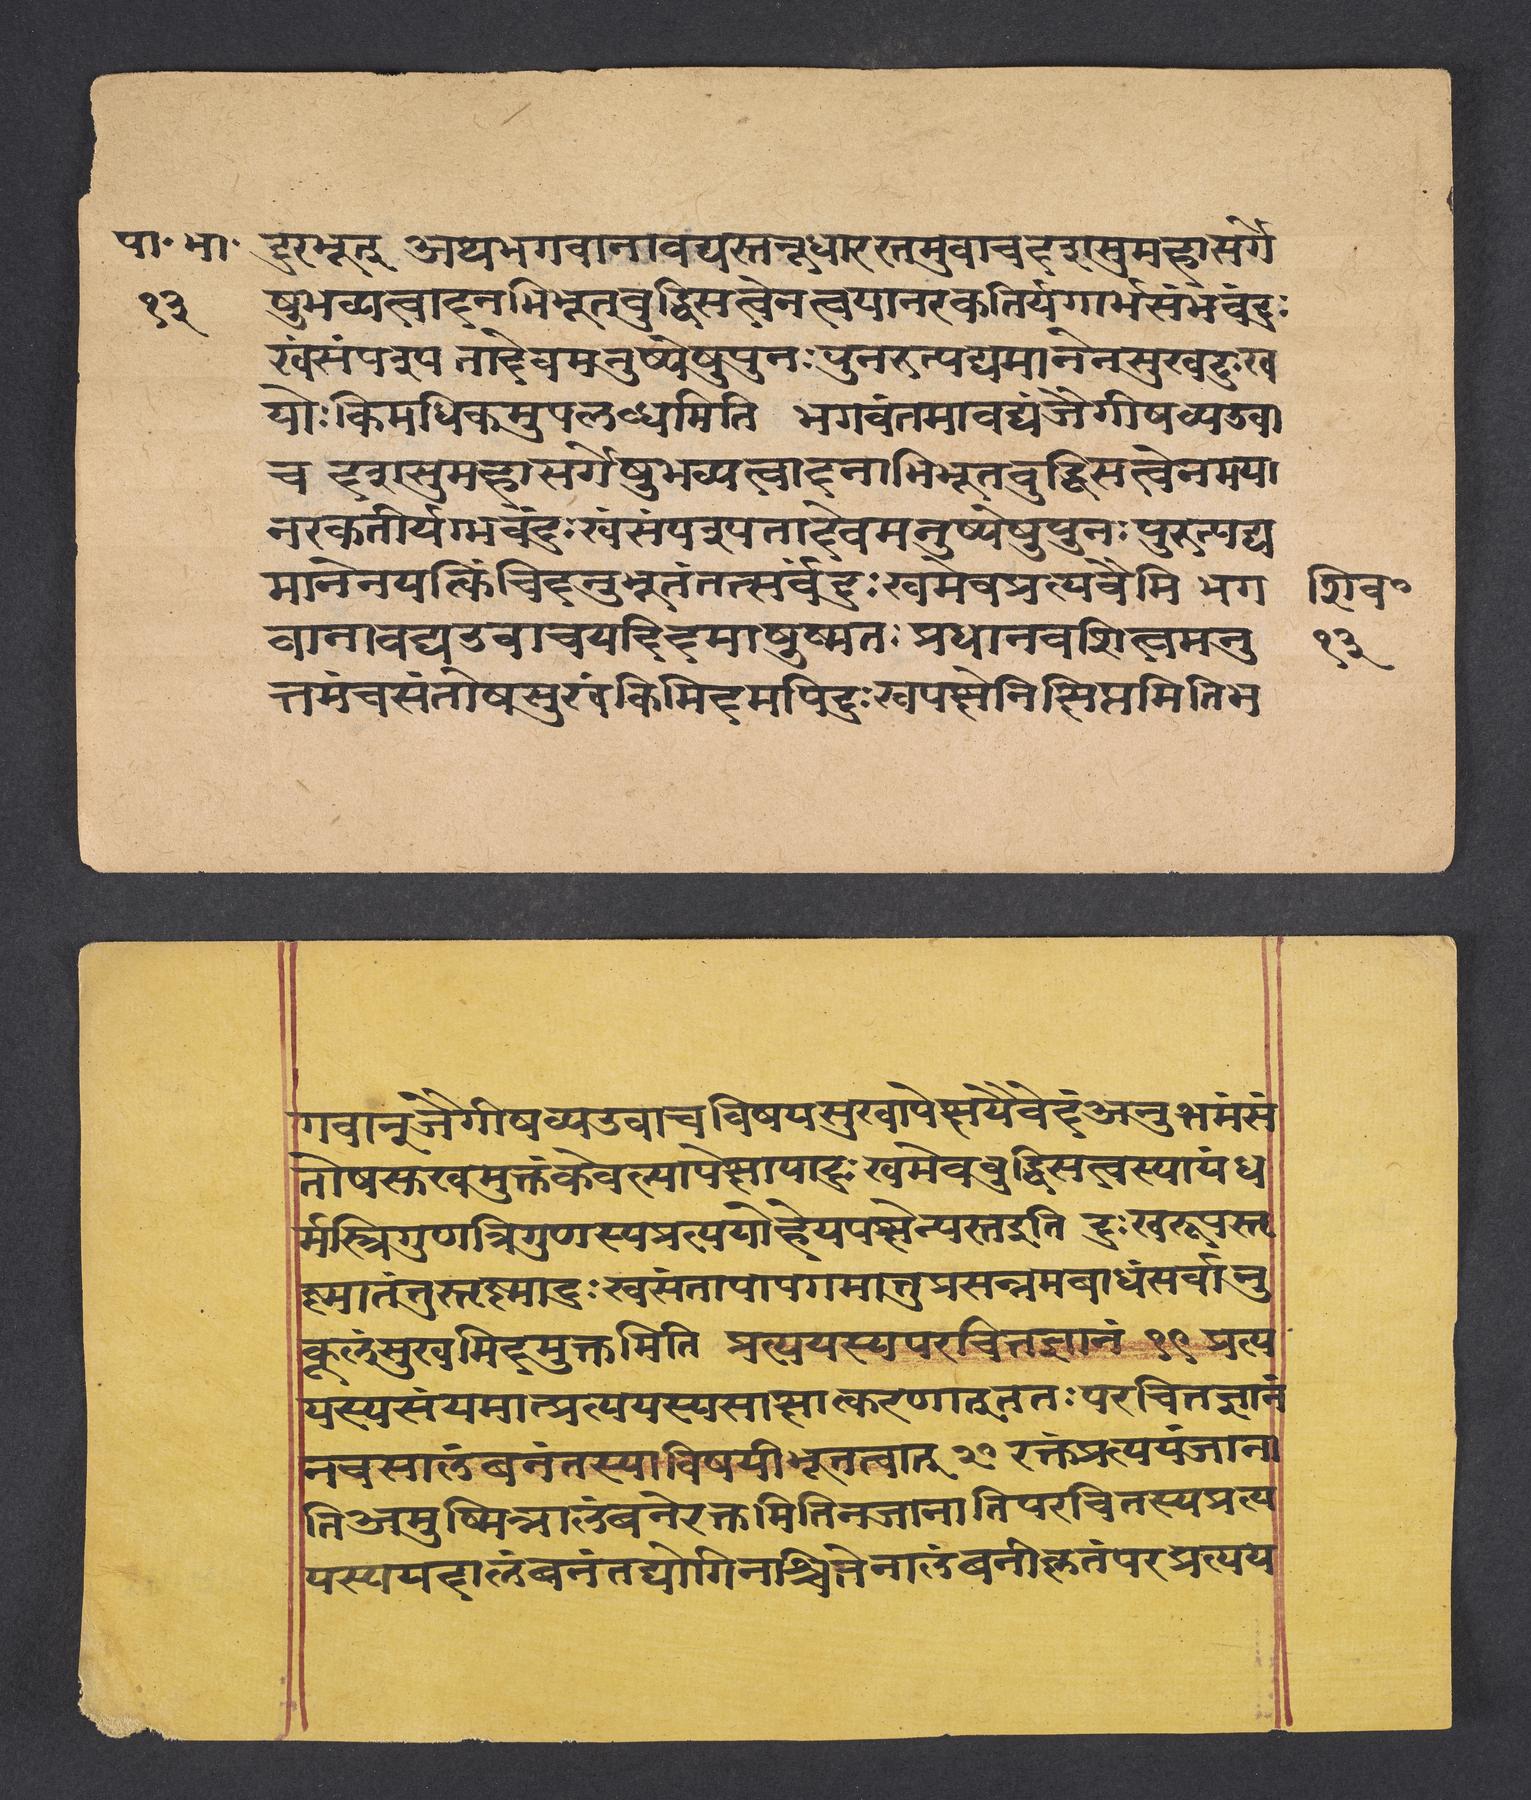 पा॰ भा॰
१३
दुरभूत् अथभगवानावद्यस्तनूधारस्तमुवाचदशसुमहासर्गे
षुभव्यत्वादनभिभूतबुद्धिसत्वेनत्वयानरकतिर्यगार्भसंभवंदुः
खंसंपश्यतादेवमनुष्येषुपुनःपुनरुत्पद्यमानेनसुखदुःख
योःकिमधिकमुपलब्धमिति भगवंतमावद्यंजैगीषव्यउवा
च दशसुमहासर्गेषुभव्यत्वादनाभिभूतबुद्धिसत्वेनमया
नरकतीर्यग्भवंदुःखंसंपश्यतादेवमनुष्येषुपुनःपुरुत्पद्य
मानेनयत्किंचिदनुभूतंतत्सर्वंदुःखमेवप्रत्यवैमि भग
वानावद्यउवाचयदिदमायुष्मतःप्रधानवशित्वमनु
त्तमंचसंतोषसुखंकिमिदमपिदुःखपक्षेनिक्षिप्तमितिभ
शिव॰
१३
गवान्जैगीषव्यउवाचविषयसुखापेक्षयैवेदंअनुत्तमंसं
तोषसुखमुक्तंकेवल्यापेक्षायादुःखमेवबुद्धिसत्वस्यायंध
र्मस्त्रिगुणत्रिगुणस्यप्रत्ययोहेयपक्षेन्यस्तइति दुःखरूपस्तृ
ष्णातंतुस्तृष्णादुःखसंतापापगमात्तुप्रसन्नमबाधंसर्वानु
कूलंसुखमिदमुक्तमिति प्रत्ययस्यपरचित्तज्ञानं १९ प्रत्य
यस्यसंयमात्प्रत्ययस्यसाक्षात्करणात्ततःपरचितज्ञानं
नचसालंबनंतस्याविषयीभूतत्वात् २० रक्तंप्रत्ययंजाना
तिअमुष्मिन्नालंबनेरक्तमितिनजानातिपरचितस्यप्रत्य
यस्ययदालंबनंतद्योगिनश्चितेनालंबनीकृतंपरप्रत्यय